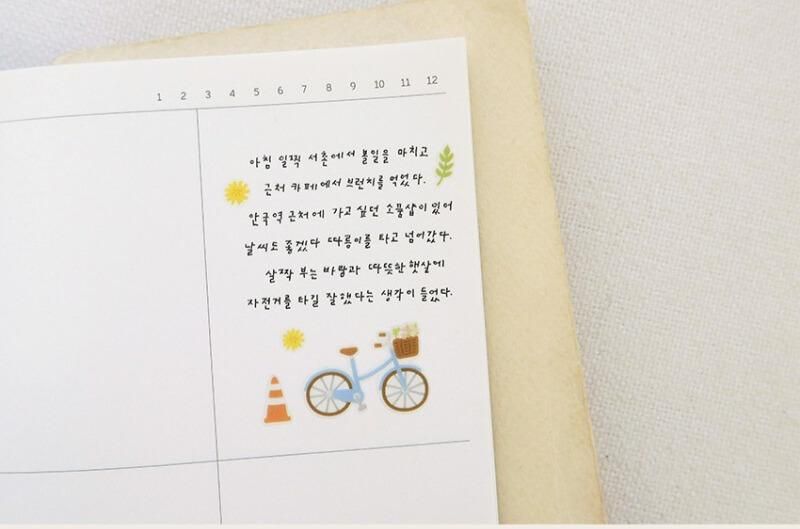 1 2 3 4 5 6 7 8 9 10 11 12
아침 일찍 서촌에서 볼일을 마치고
근처 카페에서 브런치를 먹었다.
안국역 근처에 가고 싶던 소품샵이 있어
날씨도 좋겠다 따릉이를 타고 넘어갔다.
살짝 부는 바람과 따뜻한 햇살에
자전거를 타길 잘했다는 생각이 들었다.